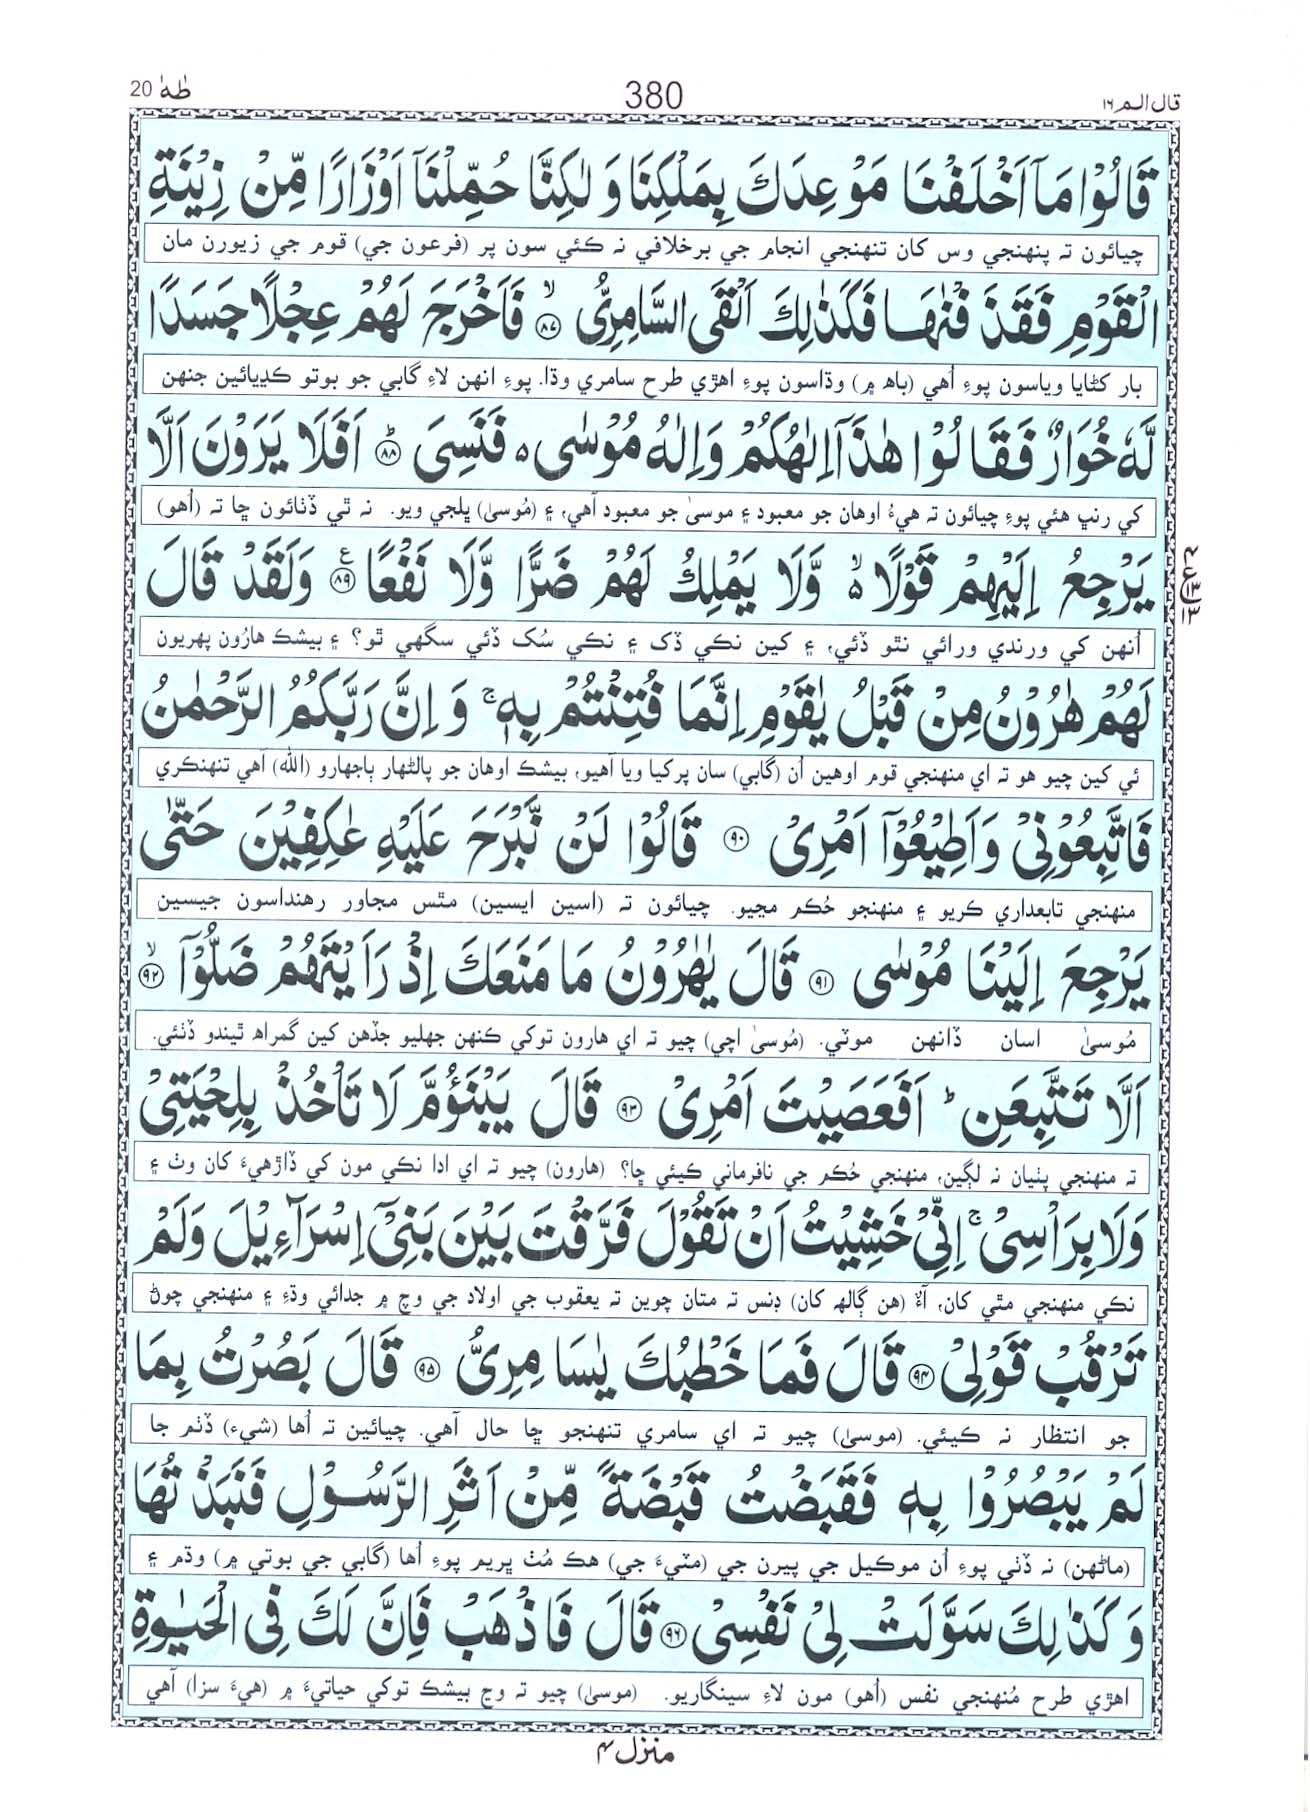 طٰهٰ 20
380
قال الـم ١٦
قَالُوْا مَاۤ اَخْلَفْنَا مَوْعِدَكَ بِمَلْكِنَا وَ لٰكِنَّا حُمِّلْنَاۤ اَوْزَارًا مِّنْ زِیْنَةِ
چيائون ته پنهنجي وس کان تنهنجي انجام جي برخلافي نه ڪئي سون پر (فرعون جي) قوم جي زيورن مان
الْقَوْمِ فَقَذَفْنٰهَا فَكَذٰلِكَ اَلْقَی السَّامِرِیُّ ۙ۝۸۷ فَاَخْرَجَ لَهُمْ عِجْلًا جَسَدًا
بار کڻايا وياسون پوءِ اُهي (باھ ۾) وڌاسون پوءِ اهڙي طرح سامري وڌا. پوءِ انهن لاءِ گابي جو بوتو ڪڍيائين جنهن
لَّهٗ خُوَارٌ فَقَالُوْا هٰذَاۤ اِلٰهُكُمْ وَ اِلٰهُ مُوْسٰی ۥ فَنَسِیَ ؕ۝۸۸ اَفَلَا یَرَوْنَ اَلَّا
کي رنڀ هئي پوءِ چيائون ته هيءُ اوهان جو معبود ۽ موسيٰ جو معبود آهي، ۽ (مُوسيٰ) ڀلجي ويو. نه ٿي ڏٺائون ڇا ته (اُهو)
یَرْجِعُ اِلَیْهِمْ قَوْلًا ۥۙ وَّ لَا یَمْلِكُ لَهُمْ ضَرًّا وَّ لَا نَفْعًا ۠۝۸۹ وَ لَقَدْ قَالَ
اُنهن کي ورندي ورائي نٿو ڏئي، ۽ کين نڪي ڏک ۽ نڪي سُک ڏئي سگهي ٿو؟ ۽ بيشڪ هارُون پهريون
لَهُمْ هٰرُوْنُ مِنْ قَبْلُ یٰقَوْمِ اِنَّمَا فُتِنْتُمْ بِهٖ ۚ وَ اِنَّ رَبَّكُمُ الرَّحْمٰنُ
ئي کين چيو هو ته اي منهنجي قوم اوهين اُن (گابي) سان پرکيا ويا آهيو، بيشڪ اوهان جو پالڻهار ٻاجهارو (الله) آهي تنهنڪري
فَاتَّبِعُوْنِیْ وَ اَطِیْعُوْۤا اَمْرِیْ ۝۹۰ قَالُوْا لَنْ نَّبْرَحَ عَلَیْهِ عٰكِفِیْنَ حَتّٰی
منهنجي تابعداري ڪريو ۽ منهنجو حُڪم مڃيو. چيائون ته (اسين ايسين) مٿس مجاور رهنداسون جيسين
یَرْجِعَ اِلَیْنَا مُوْسٰی ۝۹۱ قَالَ یٰهٰرُوْنُ مَا مَنَعَكَ اِذْ رَاَیْتَهُمْ ضَلُّوْۤا ۙ۝۹۲
مُوسيٰ اسان ڏانهن موٽي. (مُوسيٰ اچي) چيو ته اي هارون توکي ڪنهن جهليو جڏهن کين گمراھ ٿيندو ڏٺئي.
اَلَّا تَتَّبِعَنِ ؕ اَفَعَصَیْتَ اَمْرِیْ ۝۹۳ قَالَ یَبْنَؤُمَّ لَا تَاْخُذْ بِلِحْیَتِیْ
ته منهنجي پٺيان نه لڳين، منهنجي حُڪم جي نافرماني ڪيئي ڇا؟ (هارون) چيو ته اي ادا نڪي مون کي ڏاڙهيءَ کان وٺ ۽
وَ لَا بِرَاْسِیْ ۚ اِنِّیْ خَشِیْتُ اَنْ تَقُوْلَ فَرَّقْتَ بَیْنَ بَنِیْۤ اِسْرَآءِیْلَ وَ لَمْ
نڪي منهنجي مٿي کان، آءٌ (هن ڳالهه کان) ڊنس ته متان چوين ته يعقوب جي اولاد جي وچ ۾ جدائي وڌءِ ۽ منهنجي چوڻ
تَرْقُبْ قَوْلِیْ ۝۹۴ قَالَ فَمَا خَطْبُكَ یٰسَامِرِیُّ ۝۹۵ قَالَ بَصُرْتُ بِمَا
جو انتظار نه ڪيئي. (موسيٰ) چيو ته اي سامري تنهنجو ڇا حال آهي. چيائين ته اُها (شيء) ڏٺم جا
لَمْ یَبْصُرُوْا بِهٖ فَقَبَضْتُ قَبْضَةً مِّنْ اَثَرِ الرَّسُوْلِ فَنَبَذْتُهَا
(ماڻهن) نه ڏٺي پوءِ اُن موڪيل جي پيرن جي (مٽيءَ جي) هڪ مُٺ ڀريم پوءِ اُها (گابي جي بوتي ۾) وڌم ۽
وَ كَذٰلِكَ سَوَّلَتْ لِیْ نَفْسِیْ ۝۹۶ قَالَ فَاذْهَبْ فَاِنَّ لَكَ فِی الْحَیٰوةِ
اهڙي طرح مُنهنجي نفس (اُهو) مون لاءِ سينگاريو. (موسيٰ) چيو ته وڃ بيشڪ توکي حياتيءَ ۾ (هيءَ سزا) آهي
منزل ۴